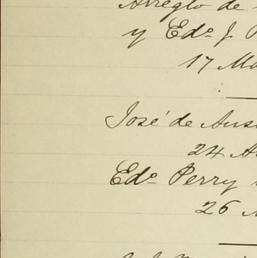 Arreglo de
y Edo. J.
17 Ma
José de Aus
24 A
Edo. Perry
26